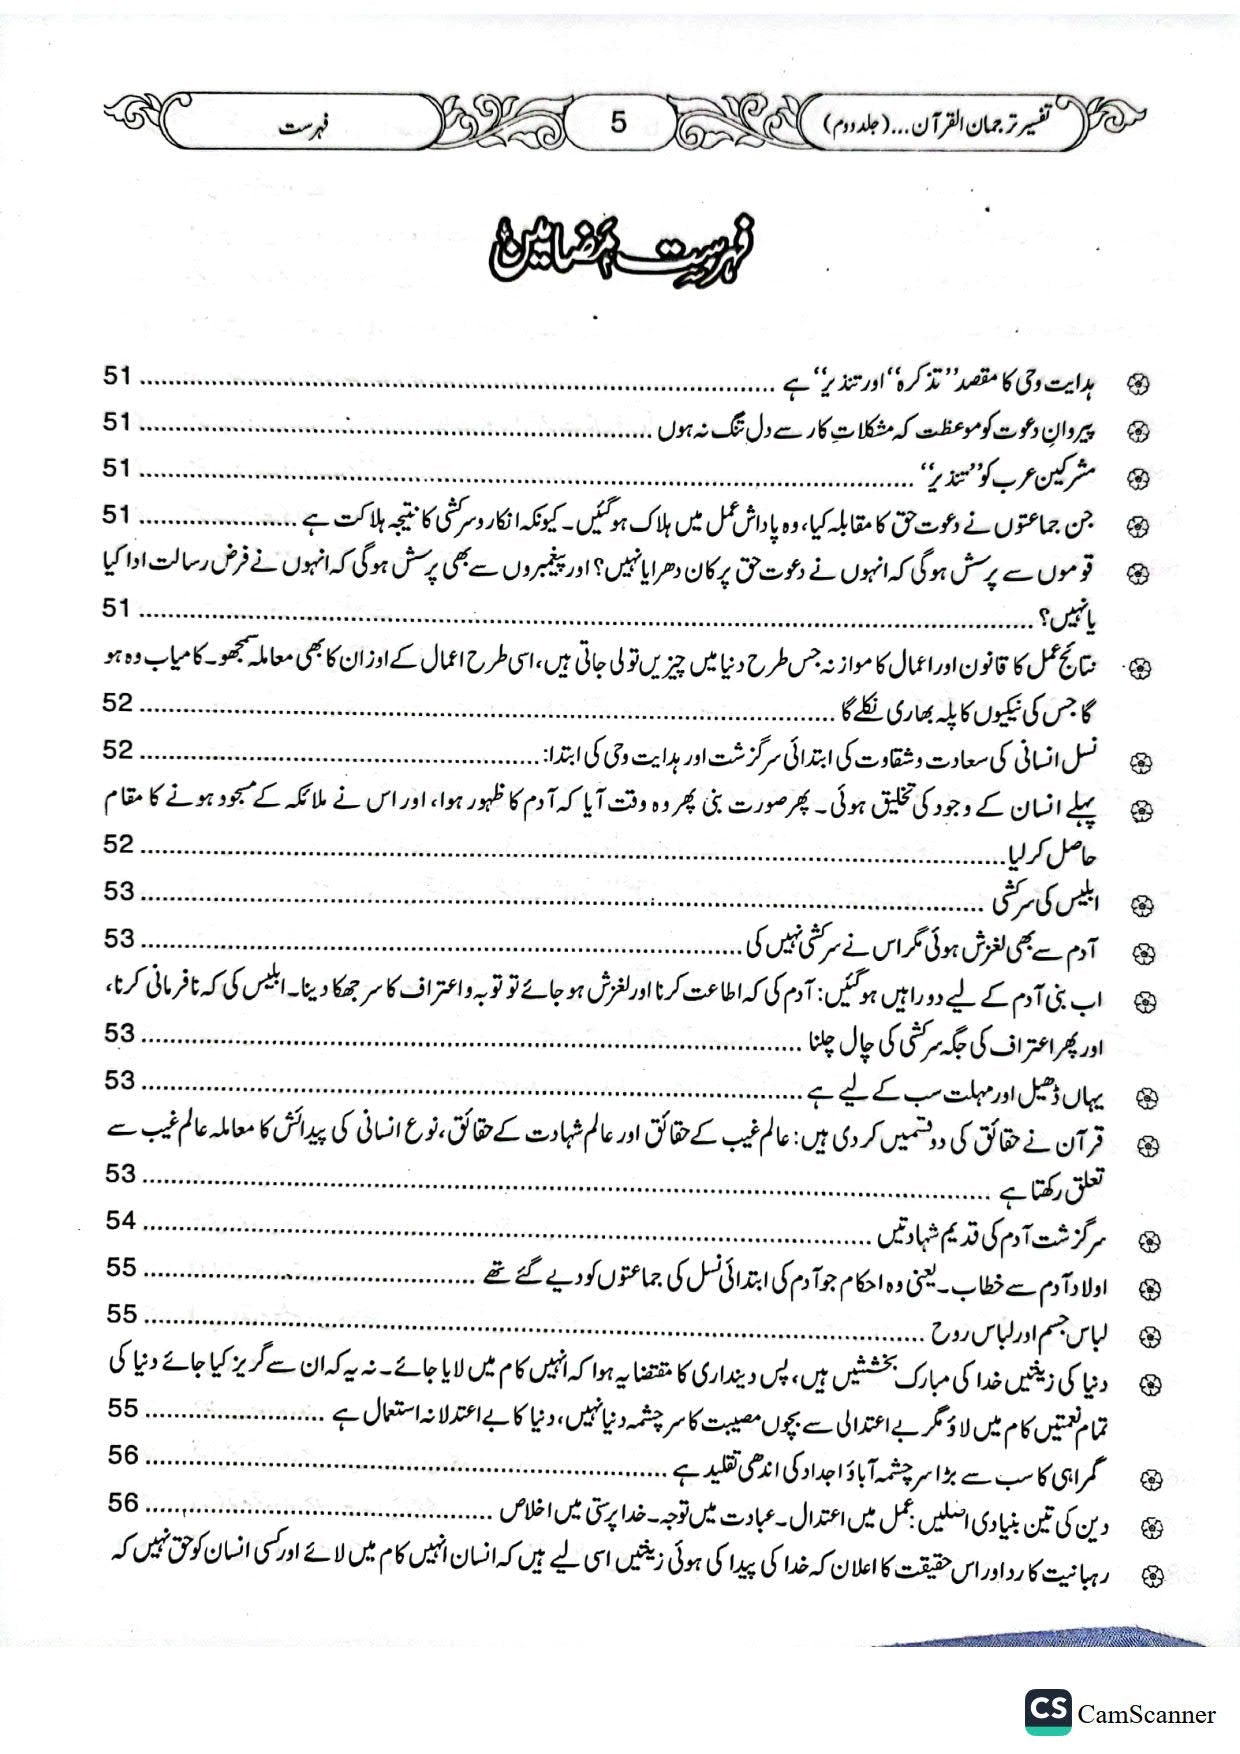 تفسیر ترجمان القرآن...(جلد دوم)
5
فہرست
فہرست مضامین
ہدایت وحی کا مقصد ''تذکرہ'' اور تنذیر'' ہے ........ 51
پیروانِ دعوت کو موعظت کہ مشکلاتِ کار سے دل تنگ نہ ہوں ........ 51
مشرکین عرب کو ''تنذیر'' ........ 51
جن جماعتوں نے دعوت حق کا مقابلہ کیا، وہ پاداش عمل میں ہلاک ہوگئیں۔ کیونکہ انکار و سرکشی کا نتیجہ ہلاکت ہے ........ 51
قوموں سے پرسش ہوگی کہ انہوں نے دعوت حق پر کان دھرا یا نہیں؟ اور پیغمبروں سے بھی پرسش ہوگی کہ انہوں نے فرض رسالت ادا کیا
یا نہیں؟ ........ 51
نتائج عمل کا قانون اور اعمال کا موازنہ جس طرح دنیا میں چیزیں تولی جاتی ہیں، اسی طرح اعمال کے اوزان کا بھی معاملہ سمجھو۔ کامیاب وہ ہو
گا جس کی نیکیوں کا پلہ بھاری نکلے گا ........ 52
نسل انسانی کی سعادت و شقاوت کی ابتدائی سرگزشت اور ہدایت وحی کی ابتدا: ........ 52
پہلے انسان کے وجود کی تخلیق ہوئی۔ پھر صورت بنی پھر وہ وقت آیا کہ آدم کا ظہور ہوا، اور اس نے ملائکہ کے مسجود ہونے کا مقام
حاصل کر لیا ........ 52
ابلیس کی سرکشی ........ 53
آدم سے بھی لغزش ہوئی مگر اس نے سرکشی نہیں کی ........ 53
اب بنی آدم کے لیے دو راہیں ہوگئیں: آدم کی کہ اطاعت کرنا اور لغزش ہو جائے تو توبہ و اعتراف کا سر جھکا دینا۔ ابلیس کی کہ نافرمانی کرنا،
اور پھر اعتراف کی جگہ سرکشی کی چال چلنا ........ 53
یہاں ڈھیل اور مہلت سب کے لیے ہے ........ 53
قرآن نے حقائق کی دو قسمیں کر دی ہیں: عالم غیب کے حقائق اور عالم شہادت کے حقائق، نوع انسانی کی پیدائش کا معاملہ عالم غیب سے
تعلق رکھتا ہے ........ 53
سرگزشت آدم کی قدیم شہادتیں ........ 54
اولاد آدم سے خطاب۔ یعنی وہ احکام جو آدم کی ابتدائی نسل کی جماعتوں کو دیے گئے تھے ........ 55
لباس جسم اور لباس روح ........ 55
دنیا کی زینتیں خدا کی مبارک بخششیں ہیں، پس دینداری کا مقتضا یہ ہوا کہ انہیں کام میں لایا جائے۔ نہ یہ کہ ان سے گریز کیا جائے دنیا کی
تمام نعمتیں کام میں لاؤ مگر بے اعتدالی سے بچوں مصیبت کا سرچشمہ دنیا نہیں، دنیا کا بے اعتدلانہ استعمال ہے ........ 55
گمراہی کا سب سے بڑا سرچشمہ آباؤ اجداد کی اندھی تقلید ہے ........ 56
دین کی تین بنیادی اصلیں: عمل میں اعتدال۔ عبادت میں توجہ۔ خدا پرستی میں اخلاص ........ 56
رہبانیت کا رد اور اس حقیقت کا اعلان کہ خدا کی پیدا کی ہوئی زینتیں اسی لیے ہیں کہ انسان انہیں کام میں لائے اور کسی انسان کو حق نہیں کہ
CS CamScanner